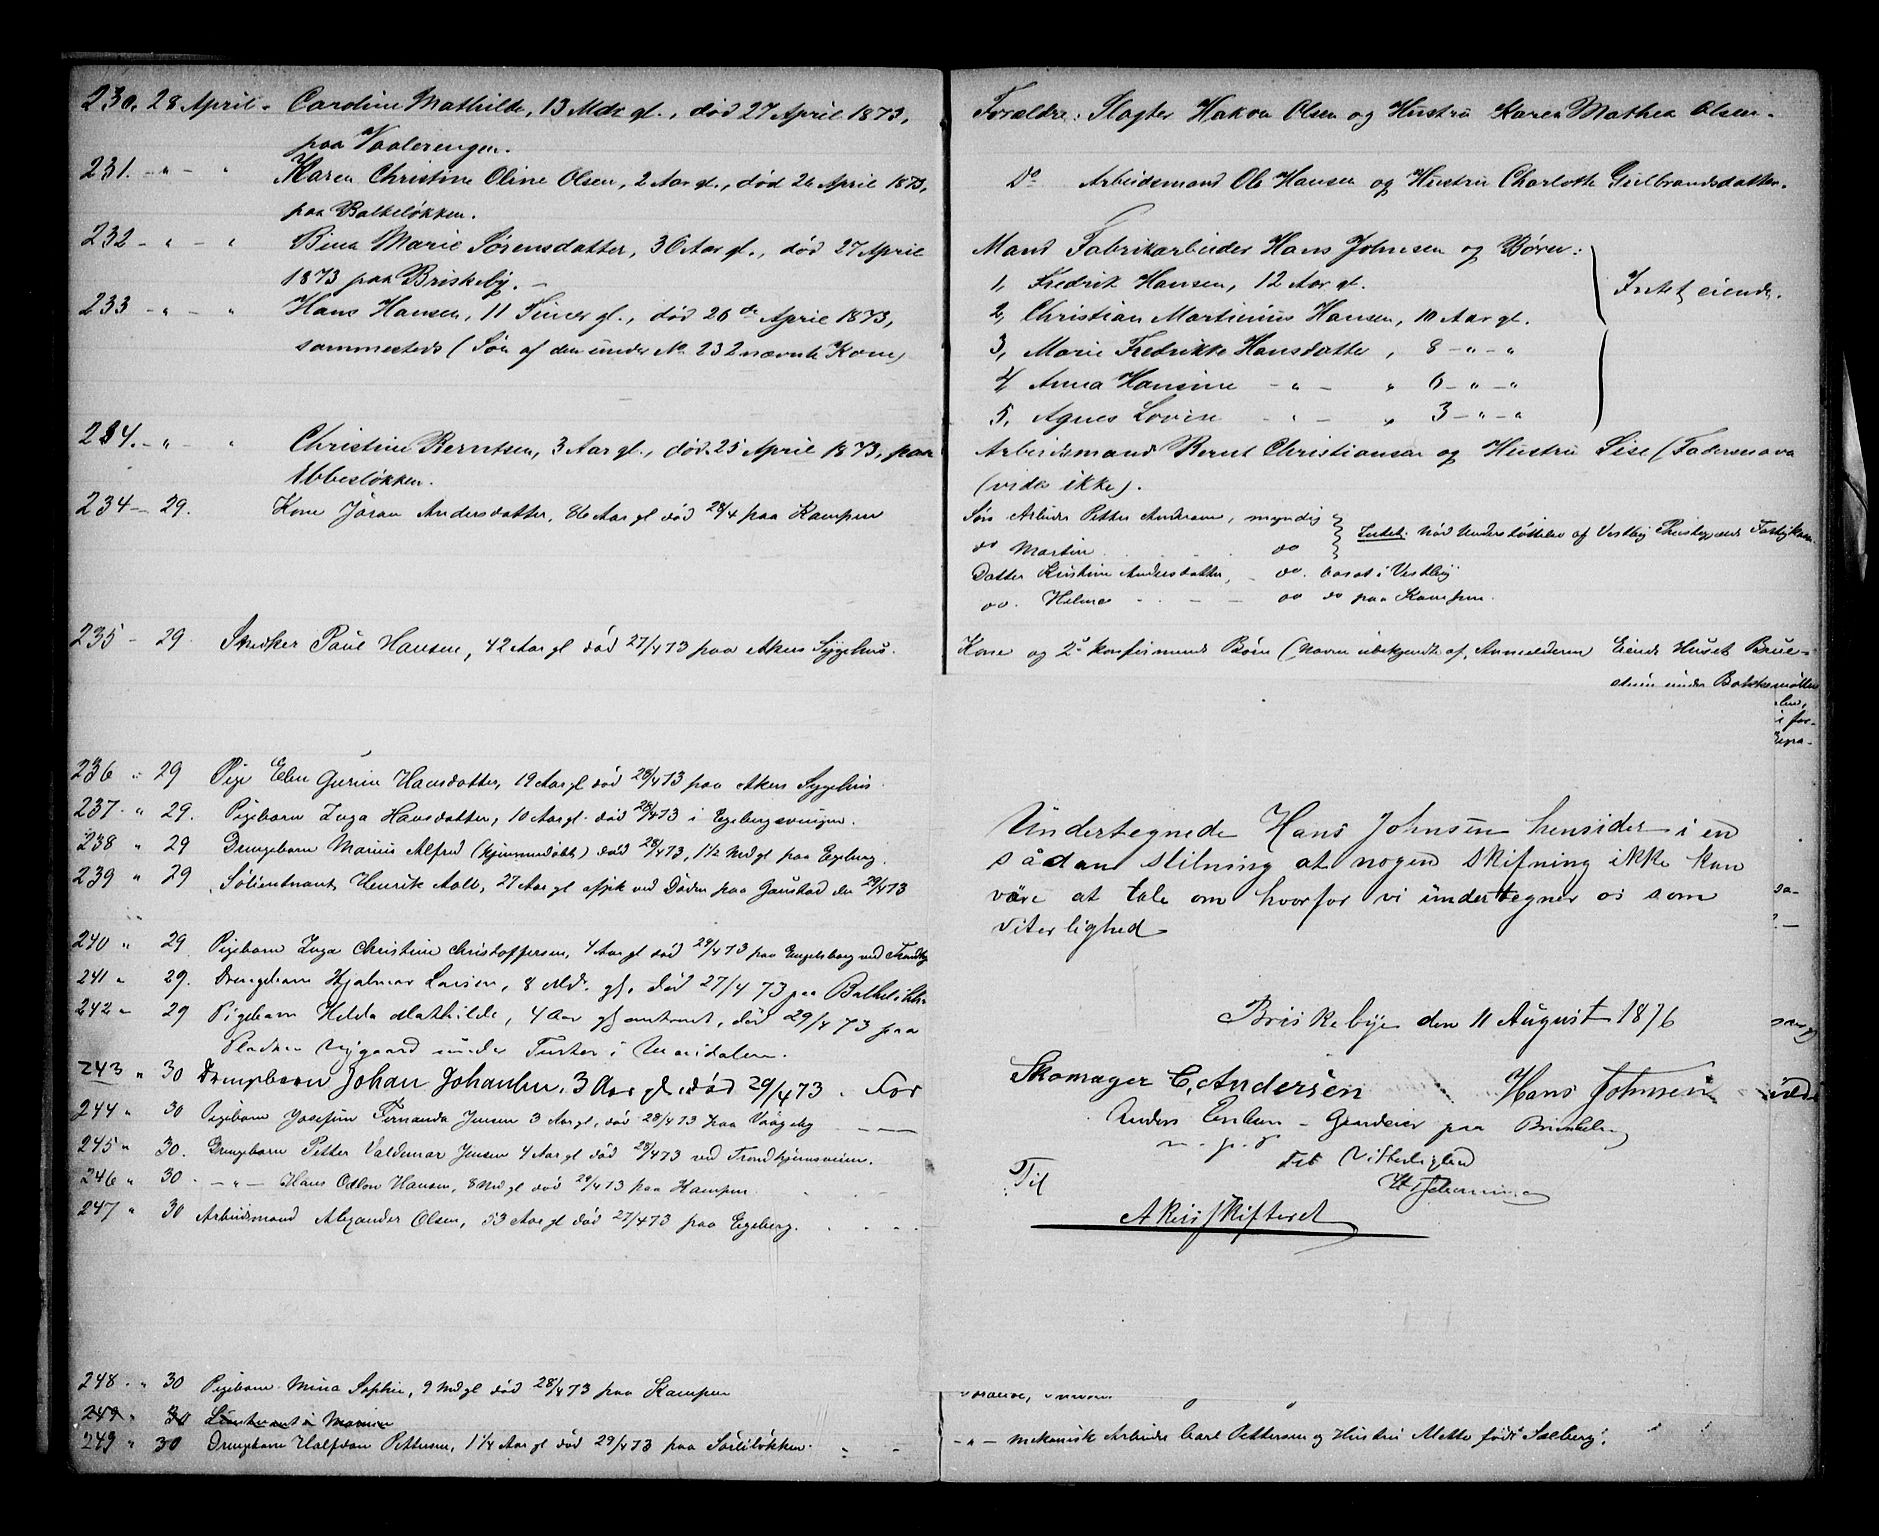 230. 28 April. Caroline Mathilde, 13 Mdr gl., død 27 April 1873,
paa Vaalerengen.
231. - " - " Karen Christine Oline Olsen, 2 Aar gl., død 26 April 1873,
paa Balkeløkken.
232 - " - " Bina Marie Sørensdatter, 36 Aar gl., død 27 April
1873 paa Briskeby. -
233 - " - " Hans Hansen, 11 Timer gl., død 26de April 1873,
sammesteds (Søn af den under No 232 nævnte Kone)
234. - " - " Christine Berntsen, 3 Aar gl., død 25 April 1873, paa
Ubbesløkken.
234 - 29. Kone Jöran Andersdatter, 86 Aar gl død 28/4 paa Kampen
235 - 29. Snedker Paul Hansen, 42 Aar gl død 27/4 73 paa Akers Sygehus.
236 " 29 Pige Elen Gurine Hansdatter, 19 Aar gl død 28/4 73 paa Akers Sygehus.
237. " 29. Pigebarn Inga Hansdatter, 10 Aar gl. død 28/4 73 i Egebergsvingen.
238 " 29 Drengebarn Marius Alfred (hjemmedøbt) død 28/4 73, 1½ Md gl paa Egeberg.
239 " 29 Henrik Aall, 27 Aar gl afgik ved Døden paa Gaustad den 29/4 73
240 " 29. Pigebarn Inga Christine Christoffersen, 4 Aar gl død 29/4 73 paa Engelsborg ved
241 " 29. Drengebarn Hjalmar Larsen, 8 Md. gl. død 27/4 73 paa
242 " 29 Pigebarn Hilda Mathilde, 4 Aar gl omtrent, død 29/4 73 paa
Pladsen Nygaard under i Maridalen.
243 " 30 Drengebarn Johan Johansen, 3 Aar gl. død 29/4 73. For
244 " 30 Pigebarn Josefine Fernanda Jensen 3 Aar gl, død 28/4 73 paa
245 " 30. Drengebarn Petter Valdemar Jensen 4 Aar gl død 28/4 73 ved Trondhjemsveien.
246 " 30 - " - Hans Hansen, 8 Md gl død 29/4 73 paa Kampen.
247 " 30 Arbeidsmand Alexander Olsen, 53 Aar gl død 27/4 73 paa Egeberg.
248. " 30 Pigebarn Mina Sophie, 9 Md gl død 28/4 73 paa Kampen
249 " 30
249 " 30 Drengebarn Halfdan Pettersen, 1¼ Aar gl død 29/4 73 paa
Forældre: Slagter Hakon Olsen og Hustru Karen Mathea Olsen.
Do Arbeidsmand Ole Hansen og Hustru Charlotte Gulbrandsdatter.
Mand Fabrikarbeider Hans Johnsen og Børn:
1, Fredrik Hansen, 12 Aar gl.
Intet eiende.
2, Christian Martinius Hansen, 10 Aar gl.
3, Marie Fredrikke Hansdatter, 8 - " - "
4, Anna Hansine - " - " 6 - " - "
5, Agnes Lovise - " - " 3 - " - "
Arbeidsmand Bernt Christiansen og Hustru Lise (Fadersnavn
(vides ikke).
Søn Arbeider Petter Andersen, myndig
Intet. Nød Understøttelse af Vestby
do Martin do
Datter Kristine Andersdatter, do. bosat i Vestby
do. Helene do do paa Kampen.
Kone og 2de konfirmerede Børn (Navn ubekjendt af Anmelderen) Eiende Huset
under
Undertegnede Hans Johnsen hensider i en
sådan stilning at nogen skifning ikke kan
väre at tale om hvorfor vi undertegner os som
viterlighed
Briskebye den 11 August 1876
Skomager C, Andersen Hans Johnsen
Anders - Gaardeier paa
m. p. P
Til Vitterlighed
Til
Akers skifteret
- " - mekanisk Arbeider Carl Pettersen og Hustru Mette født Solberg.